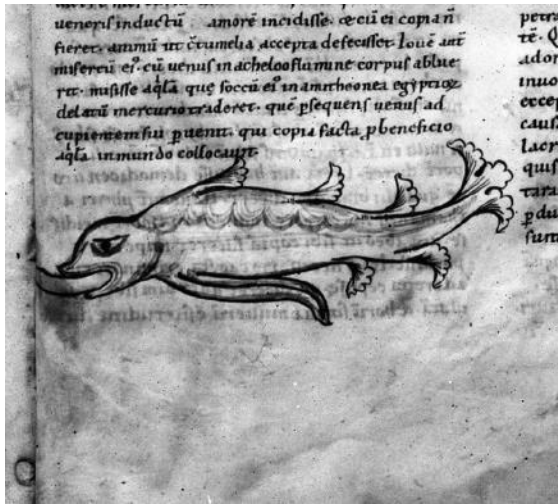 ueneris inductū amorē incidisse. & cū ei copia n̄
fieret. animū ut c̄tumelia accepta defecisset. Iouē aut̄
misertū ei᷒. cū uenus in acheloo flumine corpus ablue
rit. misisse aq̄lā que soccū ei᷒ in amitheonea egyptioꝝ
delatū mercurio traderet. quē ꝑsequens uenus ad
cupientem sui ꝑuenit. qui copia facta ꝓ beneficio
aq̄lā in mundo collocauit.
petn
tē. Q
ador
inuo
excep
caus
lacr
quis
tara
ꝑdiu
sunt